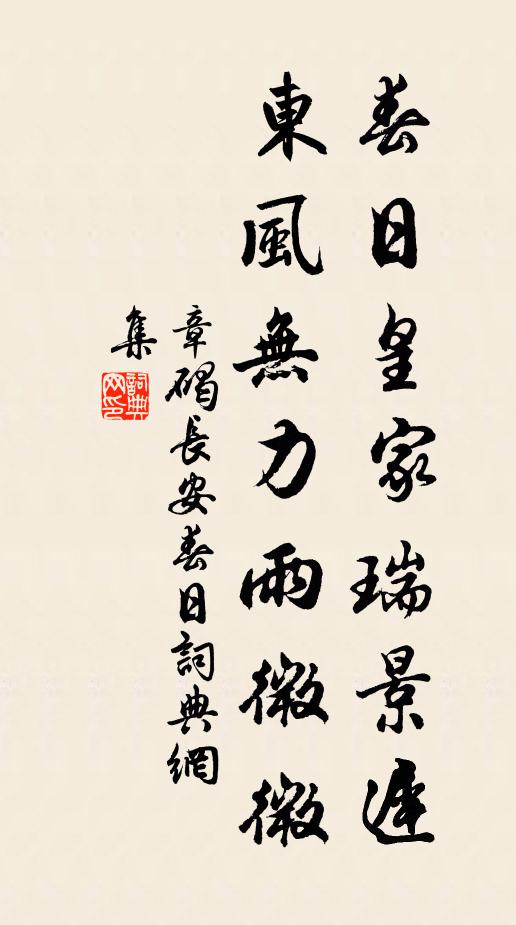 春日皇家瑞景遲
東風無力雨微微
章碣長安春日詞典網
集
詞典
网印